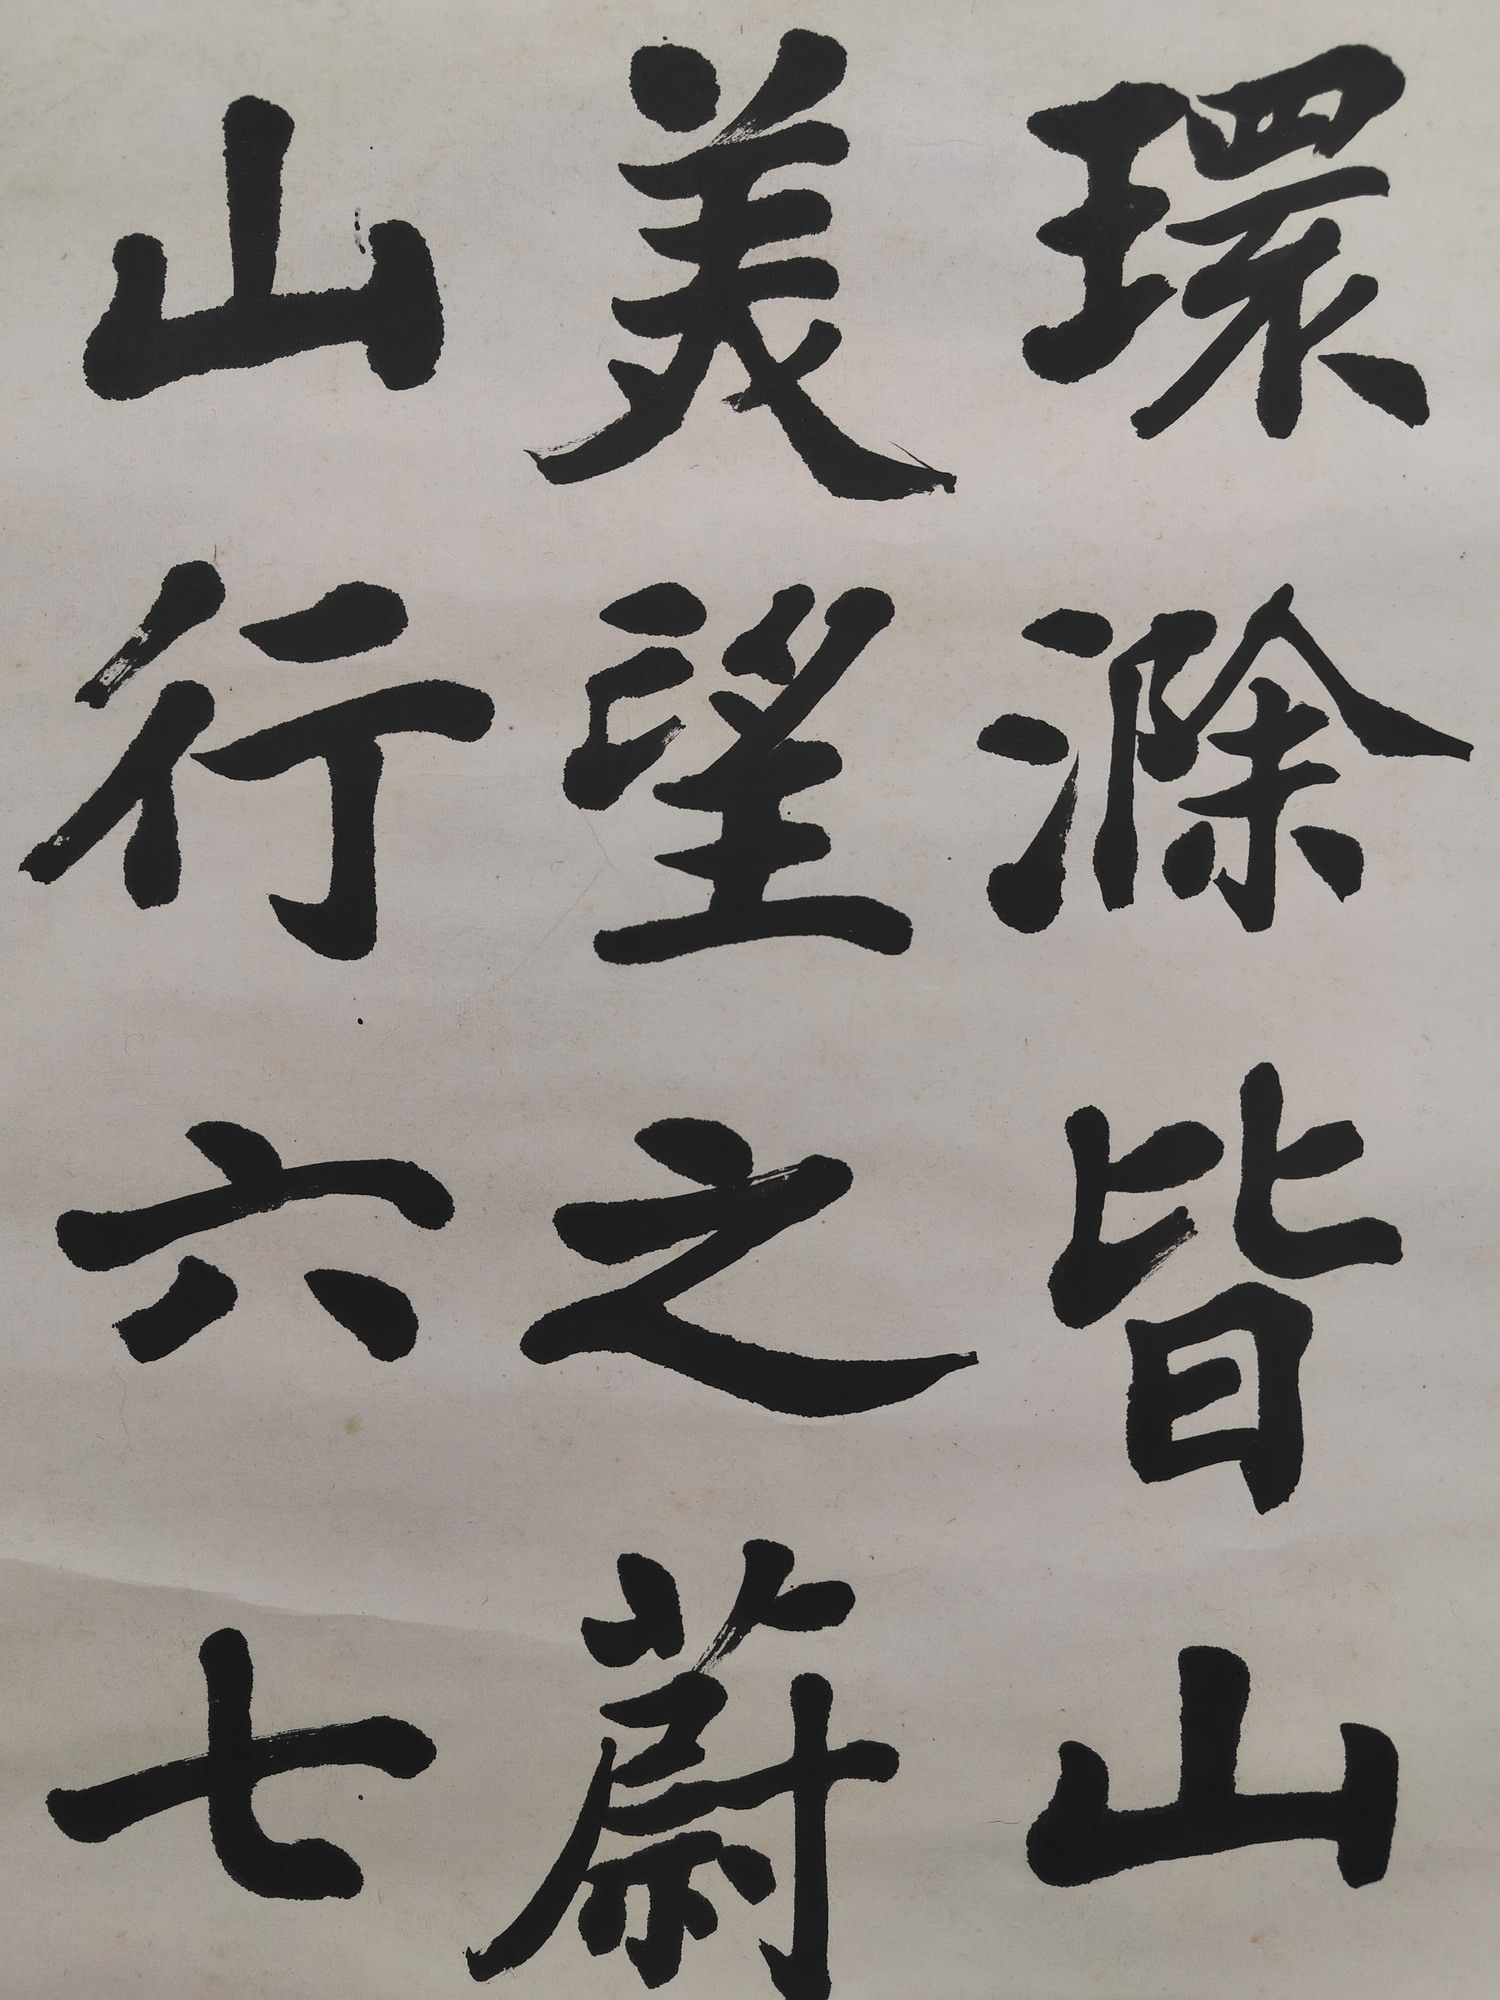 環滁皆山
美望之蔚
山行六七